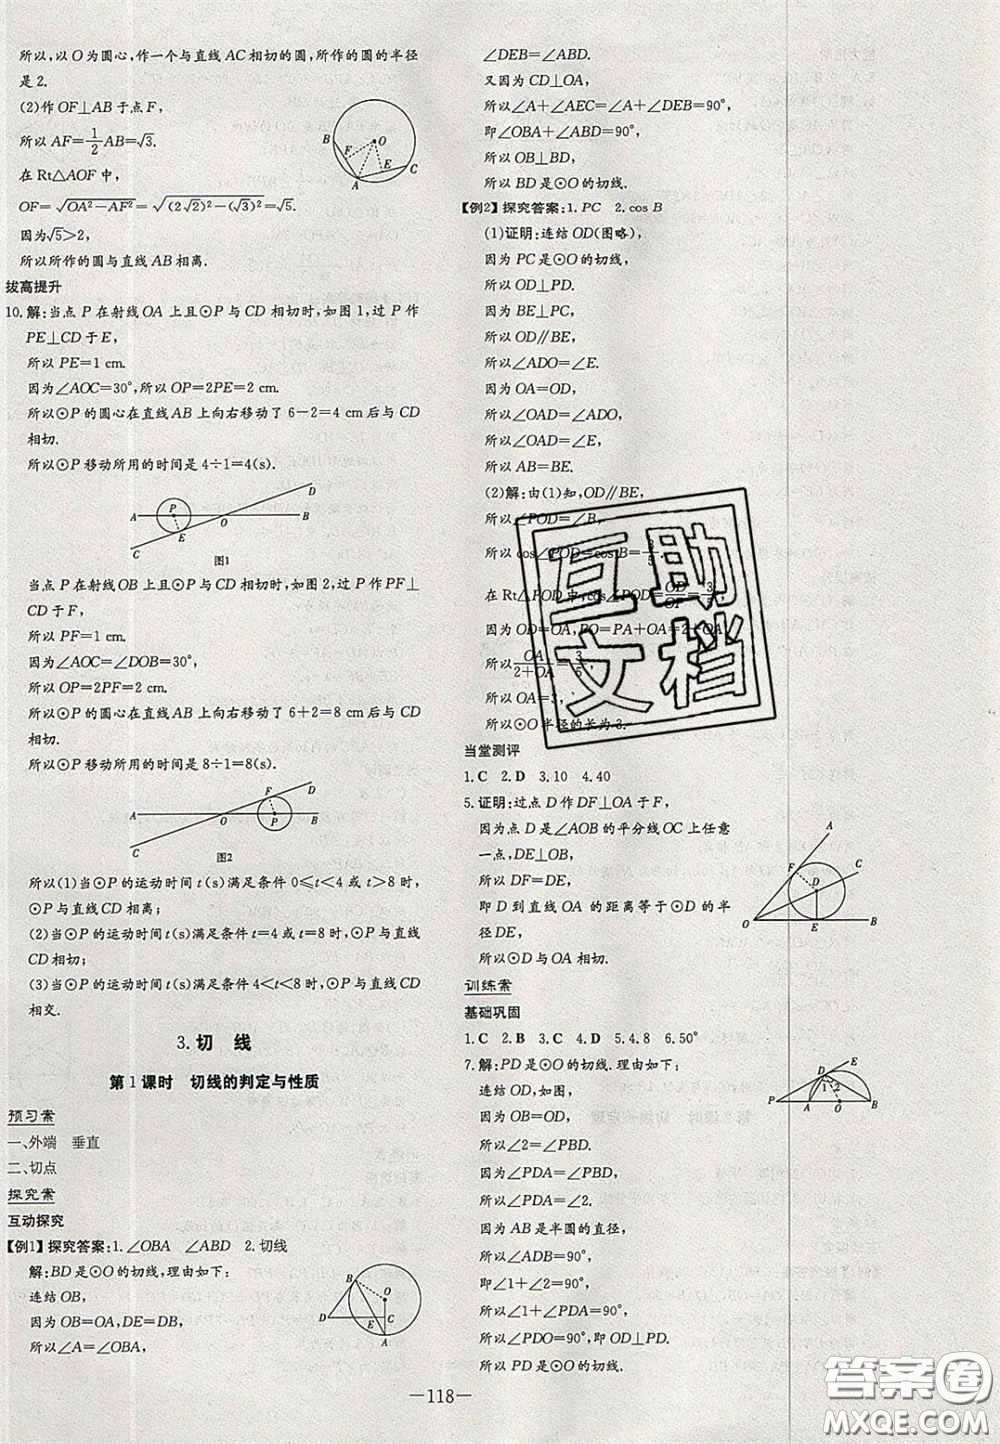 所以,以O为圆心,作一个与直线AC相切的圆,所作的圆的半径
是2.
(2)作OF⊥AB于点F,
所以AF=1/2AB=√3.
在Rt△AOF中,
OF=√(OA²-AF²)=√((2√2)²-(√3)²)=√5.
因为√5>2,
所以所作的圆与直线AB相离.
B
O
F
E
C
A
拔高提升
10.解:当点P在射线OA上且⊙P与CD相切时,如图1,过P作
PE⊥CD于E,
所以PE=1 cm.
因为∠AOC=30°,所以OP=2PE=2 cm.
所以⊙P的圆心在直线AB上向右移动了6-2=4 cm后与CD
相切.
所以⊙P移动所用的时间是4÷1=4(s).
D
P
A
O
B
E
C
图1
当点P在射线OB上且⊙P与CD相切时,如图2,过P作PF⊥
CD于F,
所以PF=1 cm.
因为∠AOC=∠DOB=30°,
所以OP=2PF=2 cm.
所以⊙P的圆心在直线AB上向右移动了6+2=8 cm后与CD
相切.
所以⊙P移动所用的时间是8÷1=8(s).
F
D
A
O
P
B
C
图2
所以(1)当⊙P的运动时间t(s)满足条件0≤t<4或t>8时,
⊙P与直线CD相离;
(2)当⊙P的运动时间t(s)满足条件t=4或t=8时,⊙P与直线
CD相切;
(3)当⊙P的运动时间t(s)满足条件4<t<8时,⊙P与直线CD
相交.
3.切 线
第1课时 切线的判定与性质
预习案
一、外端 垂直
二、切点
探究案
互动探究
【例1】探究答案:1.∠OBA ∠ABD 2.切线
解:BD是⊙O的切线,理由如下:
连结OB,
因为OB=OA,DE=DB,
所以∠A=∠OBA,
B
O
D
E
C
A
∠DEB=∠ABD.
又因为CD⊥OA,
所以∠A+∠AEC=∠A+∠DEB=90°,
即∠OBA+∠ABD=90°,
所以OB⊥BD,
所以BD是⊙O的切线.
【例2】探究答案:1.PC 2.cos B
(1)证明:连结OD(图略),
因为PC是⊙O的切线,
所以OD⊥PD.
因为BE⊥PC,
所以OD∥BE,
所以∠ADO=∠E.
因为OA=OD,
所以∠OAD=∠ADO,
所以∠OAD=∠E,
所以AB=BE.
(2)解:由(1)知,OD∥BE,
所以∠POD=∠B,
所以cos∠POD=cos B=3/5.
在Rt△POD中,cos∠POD=OD/OP=3/5,
因为OD=OA,PO=PA+OA=2+OA,
所以OA/(2+OA)=3/5,
所以OA=3,
所以⊙O半径的长为3.
互助
文档
当堂测评
1.C 2.D 3.10 4.40
5.证明:过点D作DF⊥OA于F,
因为点D是∠AOB的平分线OC上任意
一点,DE⊥OB,
所以DF=DE,
即D到直线OA的距离等于⊙D的半
径DE,
所以⊙D与OA相切.
A
F
C
D
O
E
B
训练案
基础巩固
1.C 2.B 3.C 4.D 5.4.8 6.50°
7.解:PD是⊙O的切线.理由如下:
连结OD,
因为OB=OD,
所以∠2=∠PBD.
因为∠PDA=∠PBD,
所以∠PDA=∠2.
因为AB是半圆的直径,
所以∠ADB=90°,
即∠1+∠2=90°,
所以∠1+∠PDA=90°,
所以∠PDO=90°,即OD⊥PD.
所以PD是⊙O的切线.
E
D
1 2
P
A
O
B
—118—
答案圈
MXQE.COM